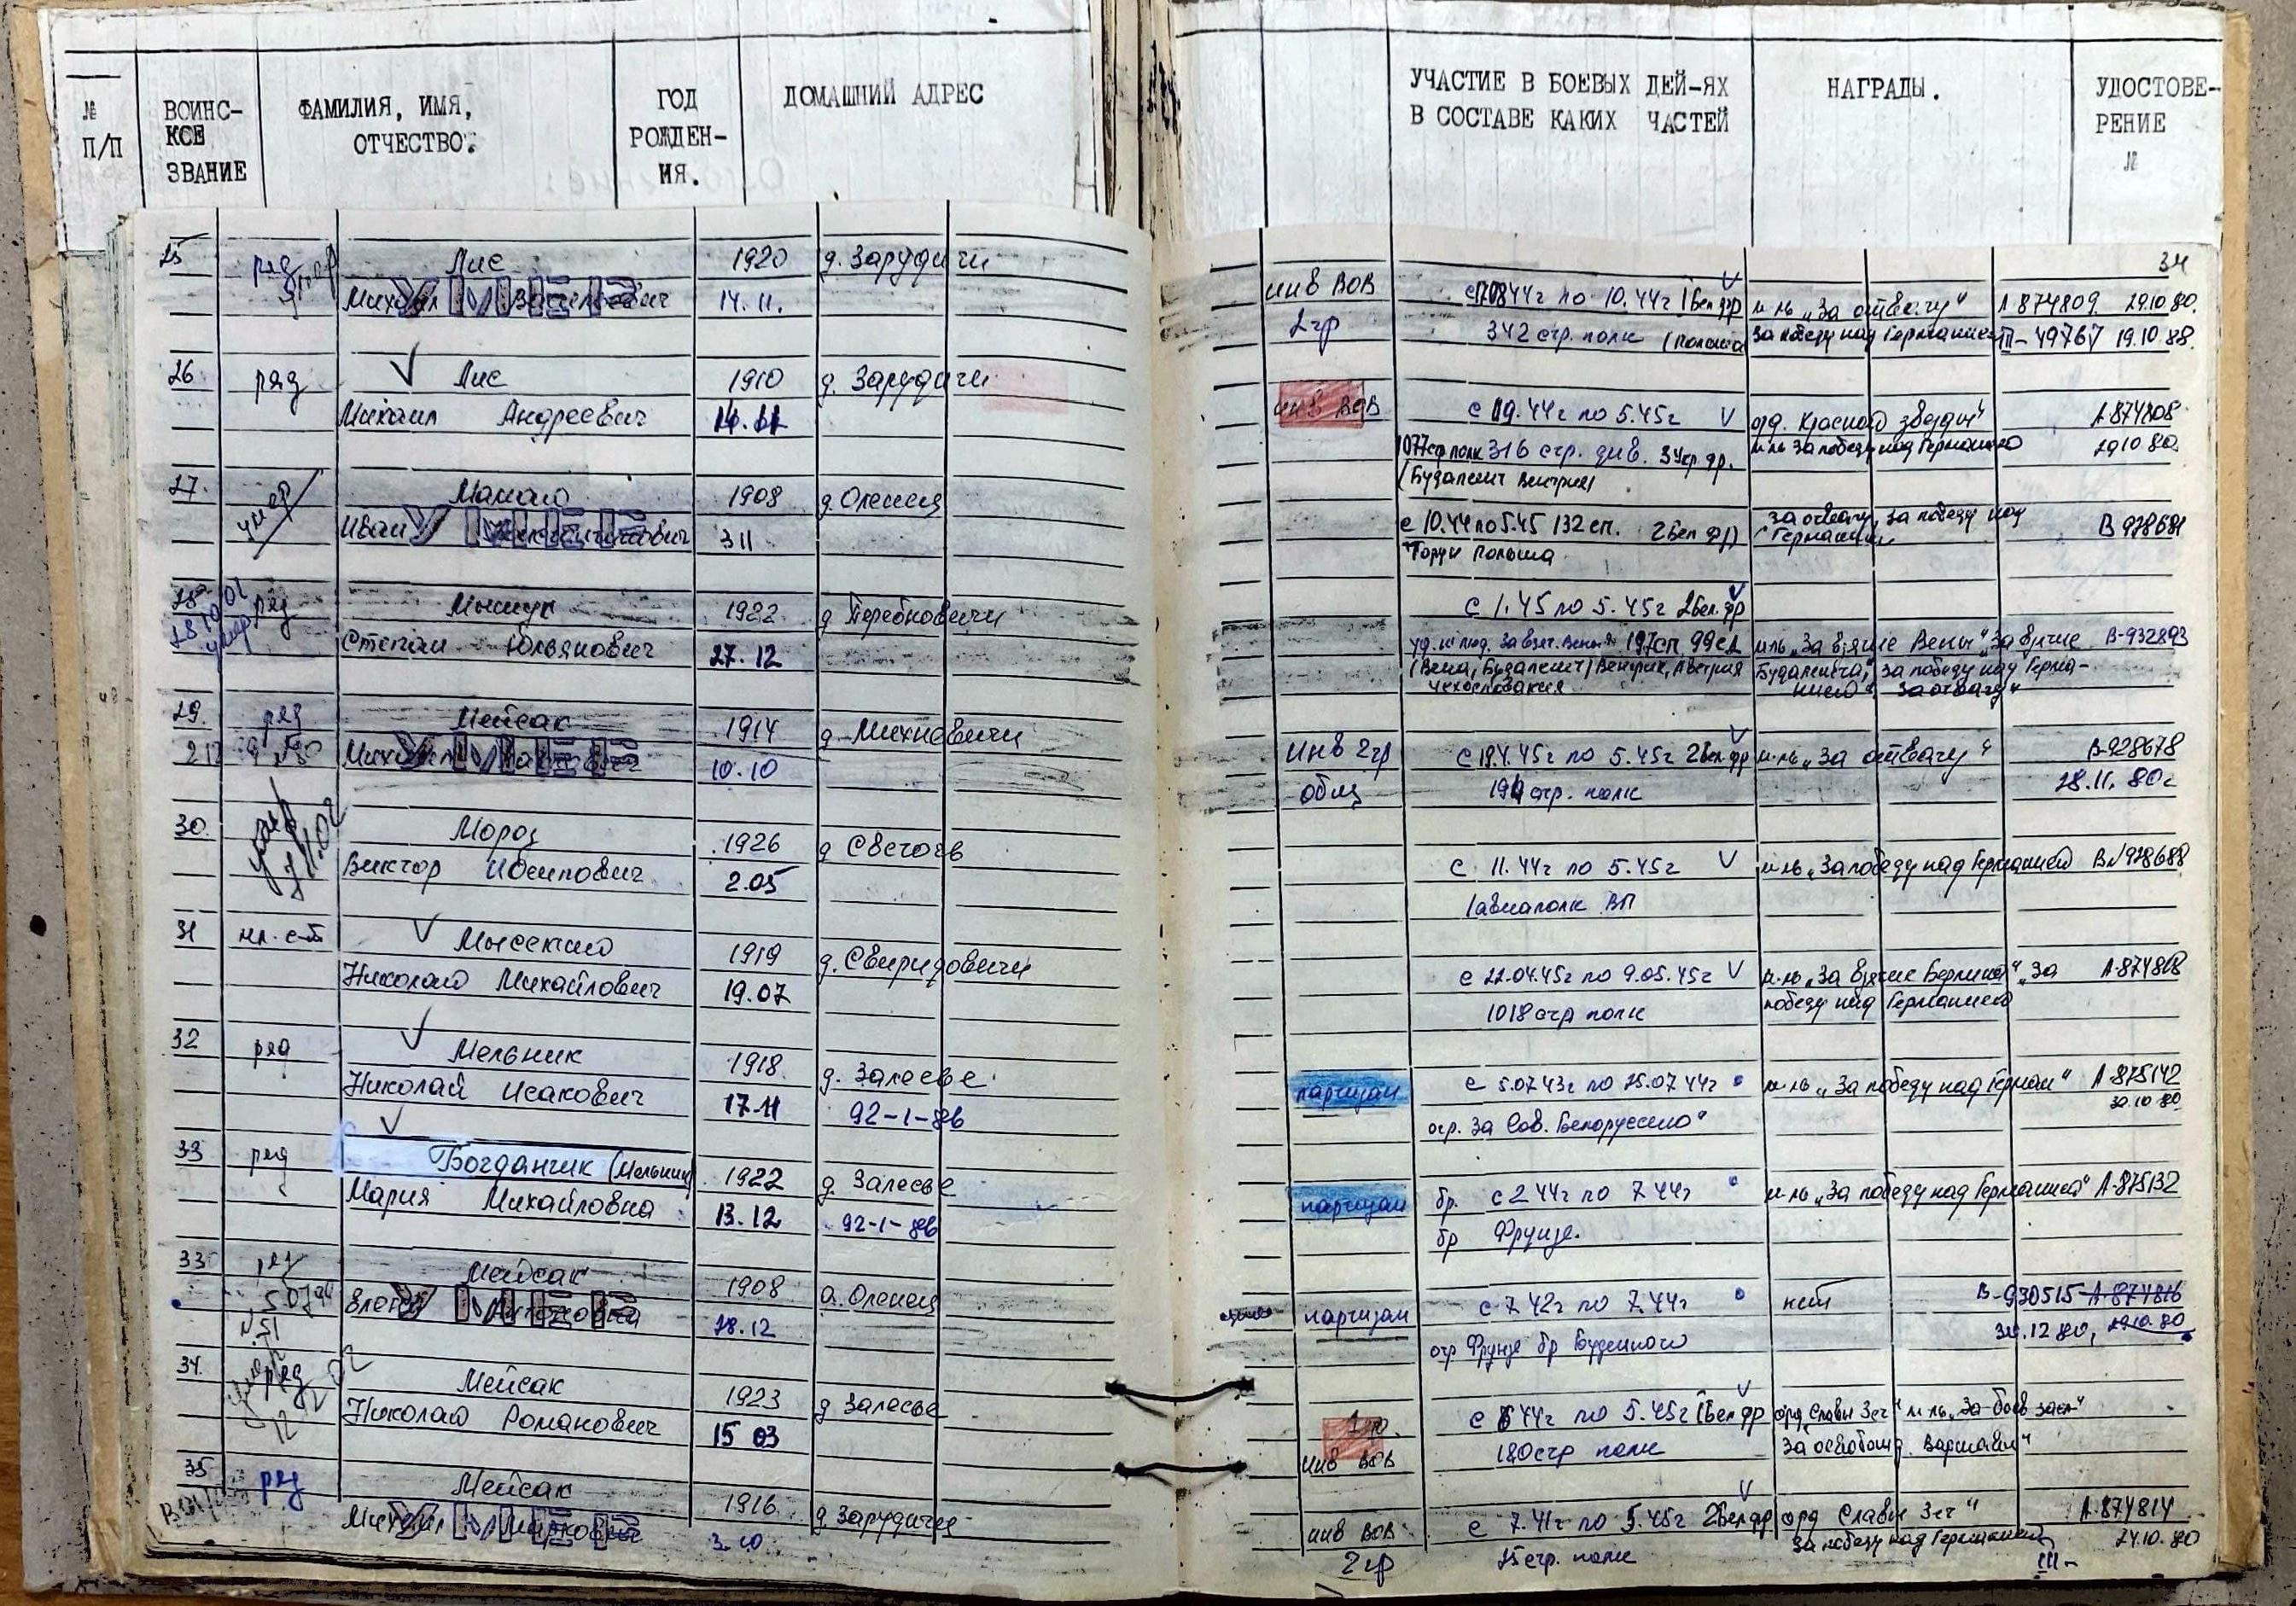 № П/П
ВОИНС-
КОЕ
ЗВАНИЕ
ФАМИЛИЯ, ИМЯ,
ОТЧЕСТВО.
ГОД
РОЖДЕН-
ИЯ.
ДОМАШНИЙ АДРЕС
УЧАСТИЕ В БОЕВЫХ ДЕЙ-ЯХ
В СОСТАВЕ КАКИХ ЧАСТЕЙ
НАГРАДЫ.
УДОСТОВЕ-
РЕНИЕ
№
34
25 ряд Лис 1920 д. Зарудичи
умер Михаил Васильевич 14.11.
УМЕР
инв ВОВ по 10.44г 1 Бел фр м-ль „За отвагу" А 874809 29.10.80.
2 гр 342 стр. полк За победу над Германией 19.10.88.
26 ряд Лис 1910 д. Зарудичи
Михаил Андреевич
инв ВОВ по 5.45г орд. Красной звезды А 874808
1077 полк 316 стр. див. 3 Укр. фр. м-ль За победу над Германией 29 10 80
(Будапешт Венгрия)
27. умер 1908 д. Оленец
Иван УМЕР 3 11
с 10.44 по 5.45 132 сп. 2 Бел фр за отвагу, за победу над
Польша Германией
28 ряд 1922
умер Степан 27.12
с 1.45 по 5.45г 2 Бел. фр
197 сп 99 сд м-ль „За взятие Вены" За взятие В-932893
(Вена, Будапешт) Венгрия, Австрия Будапешта, за победу над Герма-
Чехословакия нией" За отвагу"
29. ряд Мейсак 1914 д. Михневичи
УМЕР 10.10
инв 2 гр по 5.45г 2 Бел фр м-ль „За отвагу" В-928678
общ стр. полк 28.11.80г
30. умер Мороз 1926 д
Виктор Иосипович 2.05
с 11.44г по 5.45г м-ль „За победу над Германией
1 авиаполк ВП
31 мл. с-т 1919 д. Свиридовичи
Николай Михайлович 19.07
с 22.04.45г по 9.05.45г м-ль „За взятие Берлина" „За
1018 стр полк победу над Германией
32 ряд Мельник 1918 д. Залесье
Николай Исакович 17.11 92-1-
партизан с 5.07.43г по 15.07.44г м-ль „За победу над Герман" А-875142
отр. За Сов. Белоруссию" 30.10.80
33 ряд Богданчик (Мельник) 1922 д. Залесье
Мария Михайловна 13.12 92-1-
партизан бр. с 2 44г по 7 44г м-ль „За победу над Германией" А-875132
бр Фрунзе.
33 ряд Мейсак 1908 д. Оленец
УМЕР Антоновна 28.12
партизан с 7.42г по 7.44г нет В-930515 А-874816
отр Фрунзе бр Буденного 29.10.80
34. ряд Мейсак 1923 д Залесье
умер Николай Романович 15 03
1 гр. по 5.45г 1 Бел фр орд Славы 3 ст" м-ль „За боев засл"
инв ВОВ стр полк За освобожд. Варшавы"
35 ряд Мейсак 1916 д Зарудичи
УМЕР 3.10
инв ВОВ с 7.41г по 5.45г 2 Бел фр орд Славы 3 ст" А-874814
2 гр стр. полк За победу над Германией III- 24.10.80